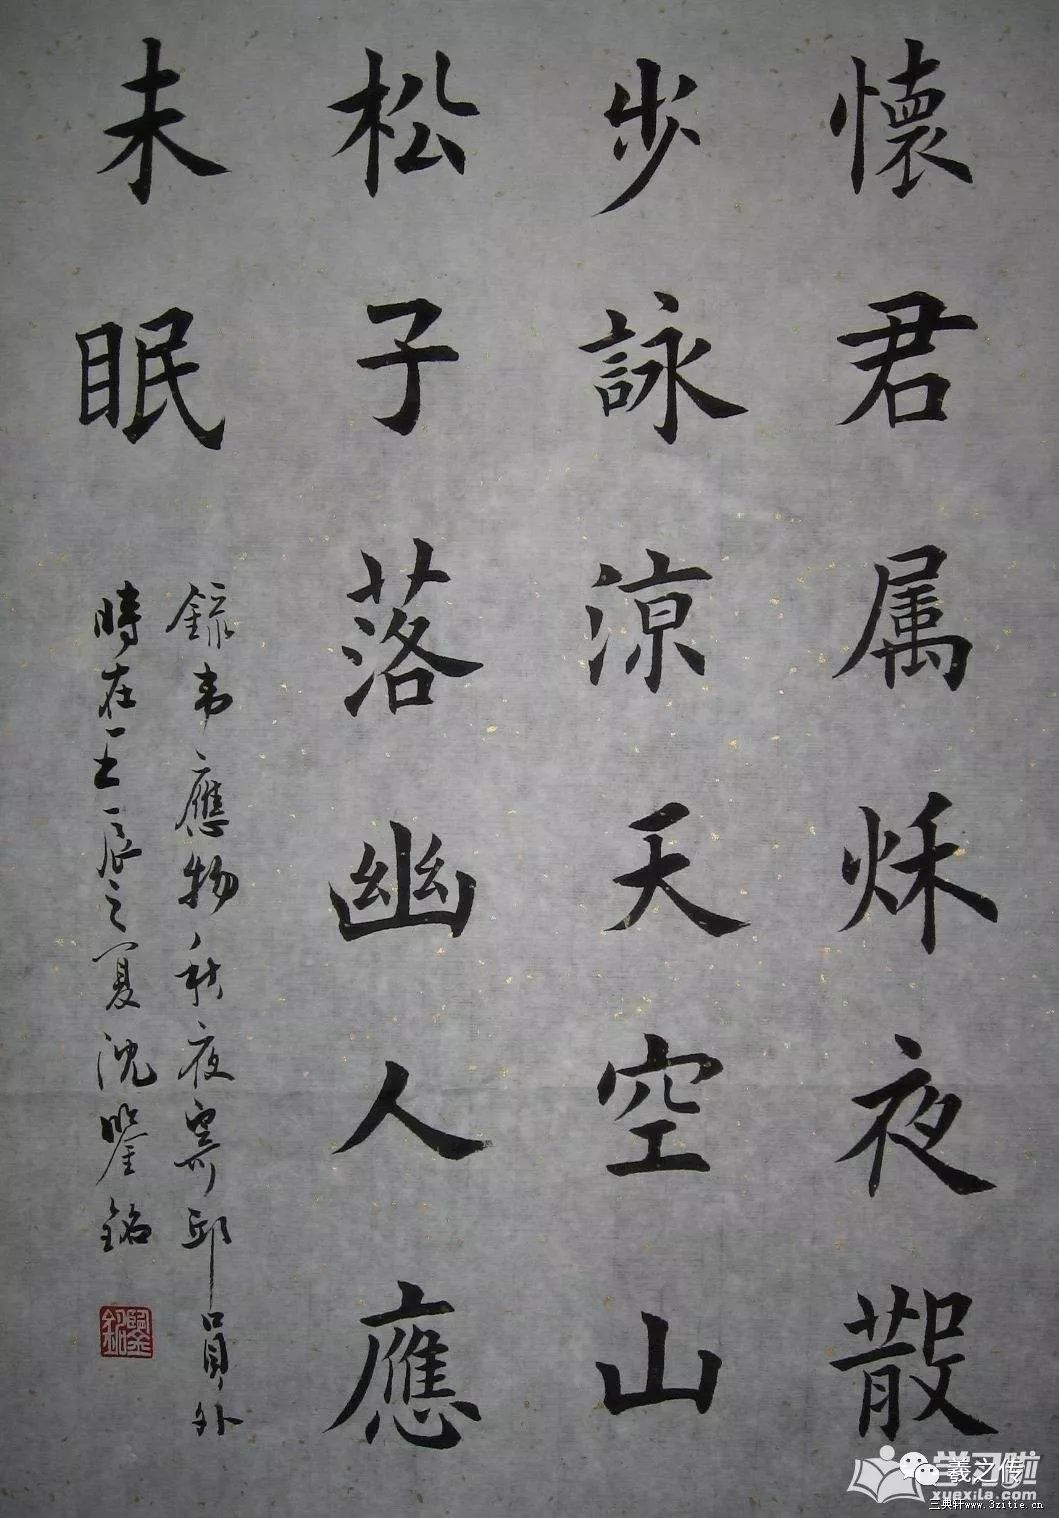 懷君属秌夜散
步詠涼天空山
松子落幽人應
未眠
録韦應物秋夜寄邱員外
時在壬辰之夏沈鑒銘
鑒銘
学习啦
xuexila.com
羲之传
三典轩www.3zitie.cn